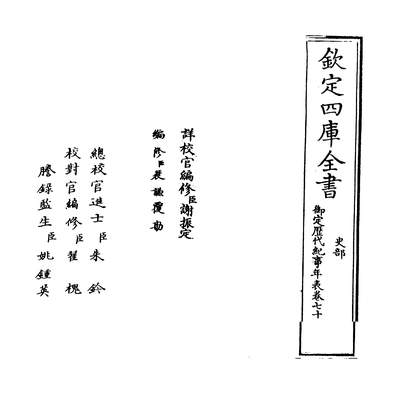 欽定四庫全書
史部
御定歷代紀事年表卷七十
詳校官編修臣謝振定
編修臣裴謙覆勘
總校官進士臣朱鈐
校對官編修臣翟槐
謄錄監生臣姚鍾英